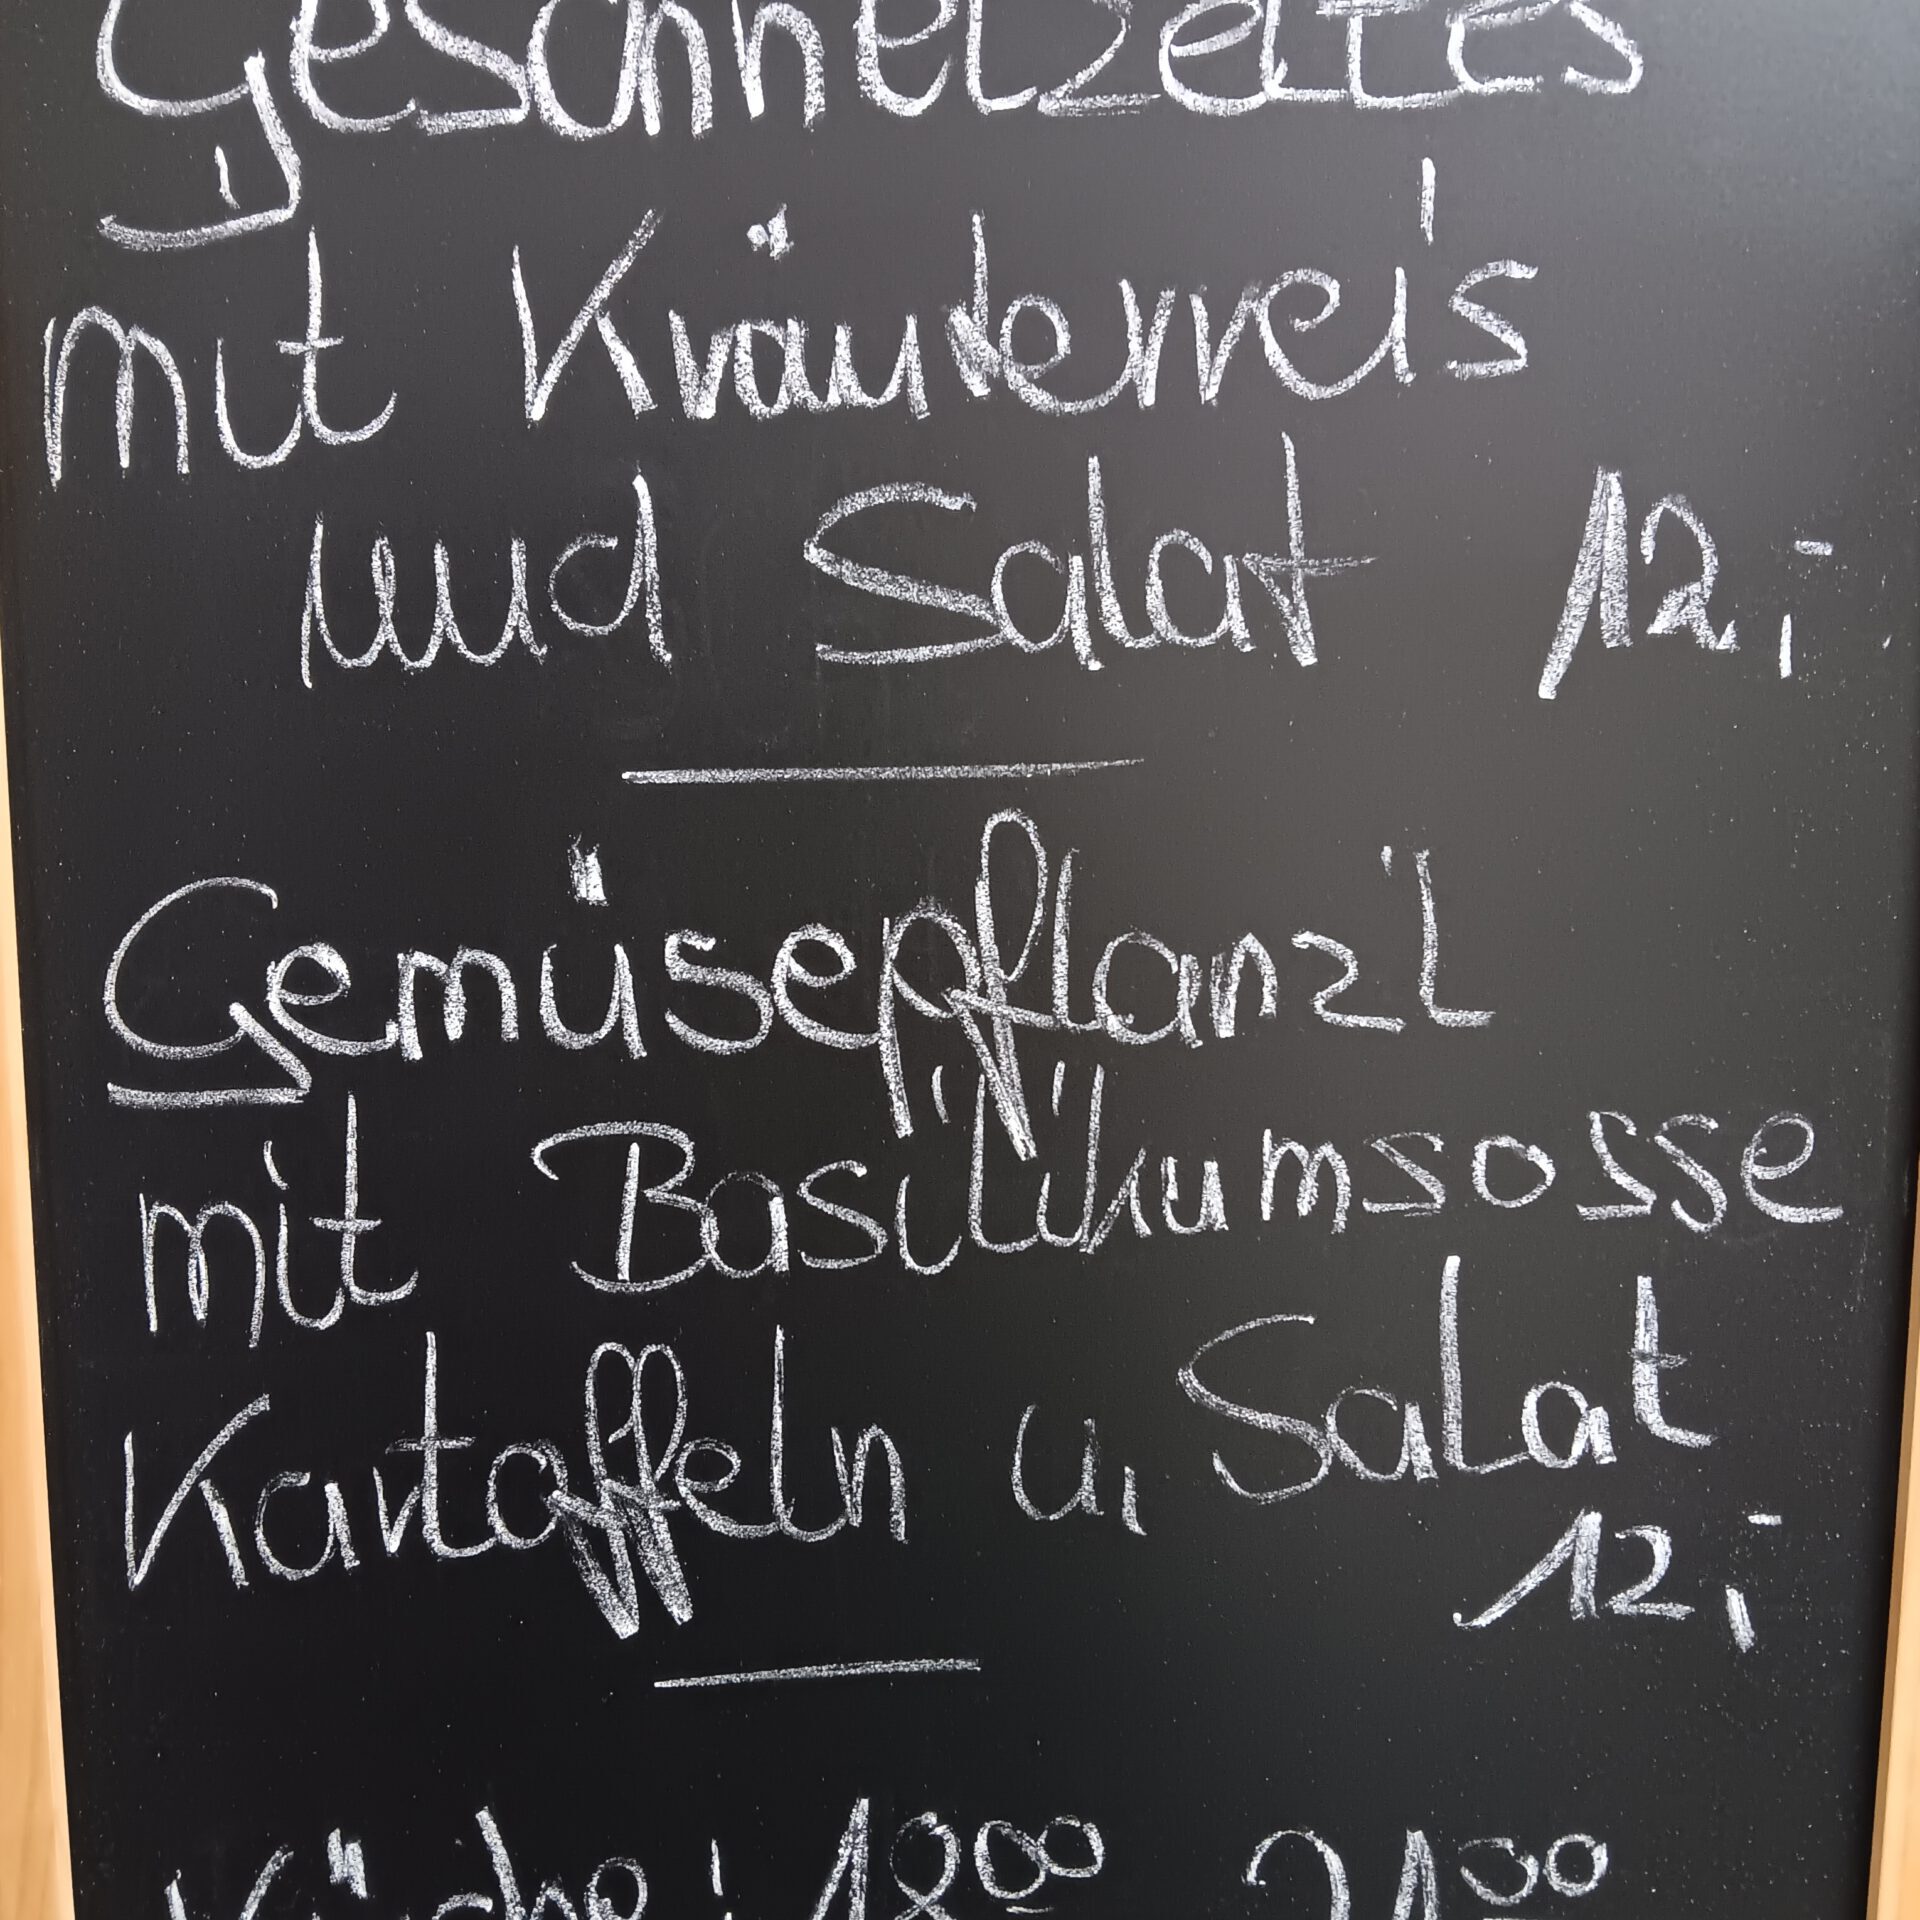 Geschnetzeltes
mit Kräuterreis
und Salat 12,-
Gemüsepflanzl
mit Basilikumsosse
Kartoffeln u. Salat
12,-
Küche: 18 00 21 00